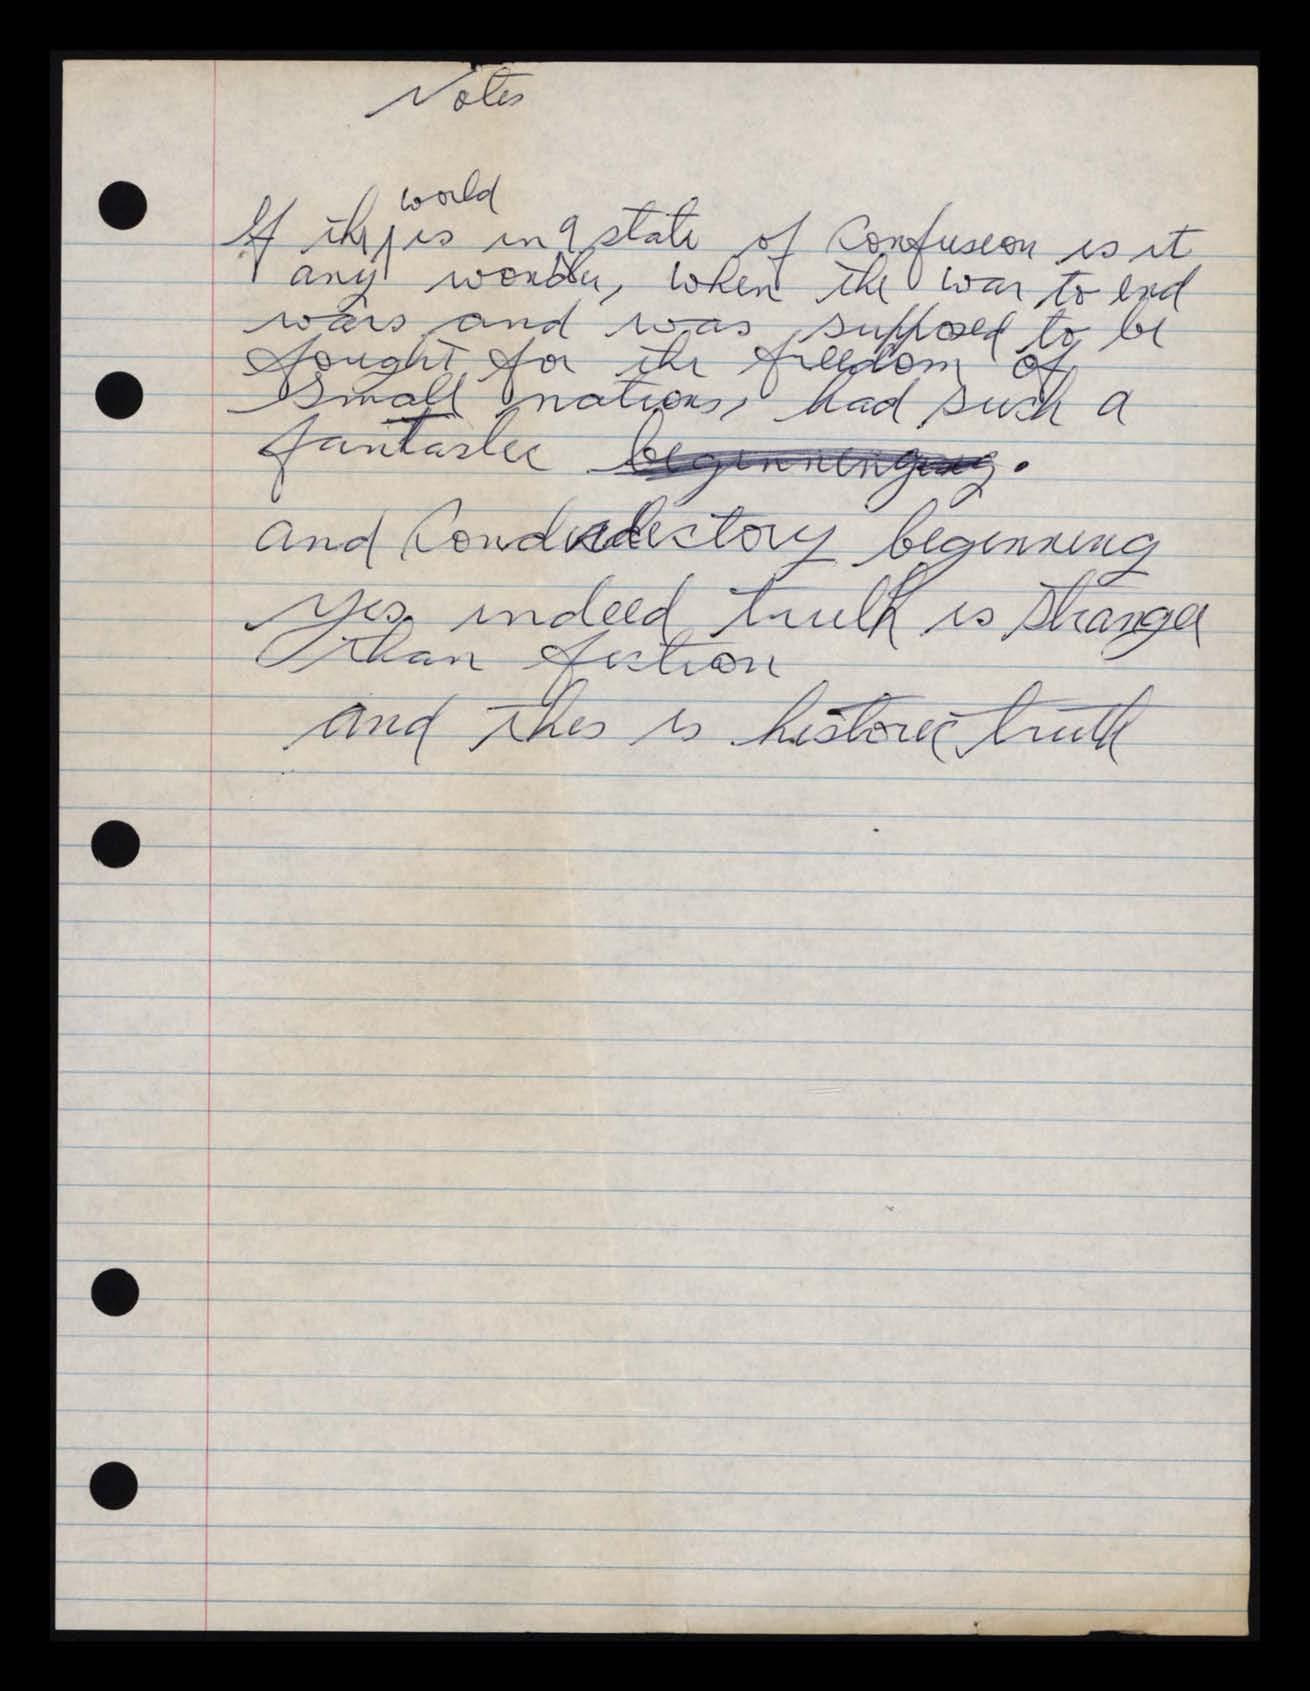 Notes
world
If the is in a state of Confusion is it
any wonder, when the war to end
wars and was supposed to be
fought for the freedom of
Small nations, had such a
fantastic beginning.
and beginning
yes indeed truth is stranger
than fiction
and this is historic truth